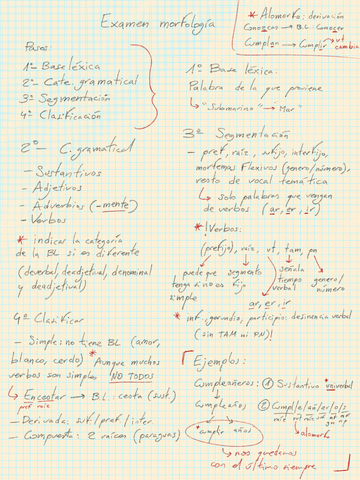 Examen morfología
* Alomorfo: derivación
Conozcas → B.L: Conocer
Cumplan → Cumplir → vt cambia
Pasos:
1º Base léxica
2º Cate. gramatical
3º Segmentación
4º Clasificación
1º Base léxica:
Palabra de la que proviene
↳ "Submarino" → "Mar"
2º - C. gramatical
- Sustantivos
- Adjetivos
- Adverbios (-mente)
- Verbos
* indicar la categoría
de la BL si es diferente
(deverbal, deadjetival, denominal
y deadjetival)
3º Segmentación
- pref, raíz, sufijo, interfijo,
morfemas flexivos (genero/número),
resto de vocal temática
↳ solo palabras que vengan
de verbos (ar, er, ir)
* ¡Verbos:
(prefijo), raíz, vt, tam, pn
puede que
tenga si no es
simple
segmento
fijo
señala
tiempo
verbal
genero/
número
ar, er, ir
* inf, gerundio, participio: desinencia verbal
(sin TAM ni PN)!
4º Clasificar
- Simple: no tiene BL (amor,
blanco, cerdo) * Aunque muchos
verbos son simples NO TODOS
↳ Encestar → B.L: cesta (sust.)
pref raíz
- Derivada: suf/pref/inter
- Compuesta: 2 raíces (paraguas)
Ejemplos:
Cumpleañeros: ① Sustantivo
↓
Cumpleaños
↓
* cumplir años
② Cumpl/e/añ/er/o/s
alomorfo
↳ nos quedamos
con el último siempre